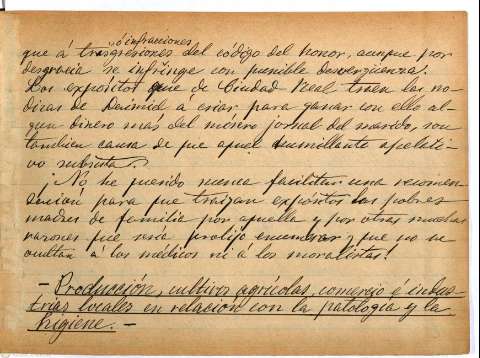 ó infracciones
que á trasgresiones del código del honor, aunque por
desgracia se infringe con punible desvergüenza.
Los expósitos que de Ciudad Real traen las no-
drizas de Daimiel á criar para ganar con ello al-
gun dinero más del mísero jornal del marido, son
tambien causa de que aquel humillante apelati-
vo subsista.
¡No he querido nunca facilitar una recomen-
dacion para que traigan expósitos las pobres
madres de familia por aquella y por otras muchas
razones que sería prolijo enumerar y que no se
ocultan á los médicos ni á los moralistas!
- Producción, cultivos agrícolas, comercio é indus-
trias locales en relacion con la patología y la
higiene. -